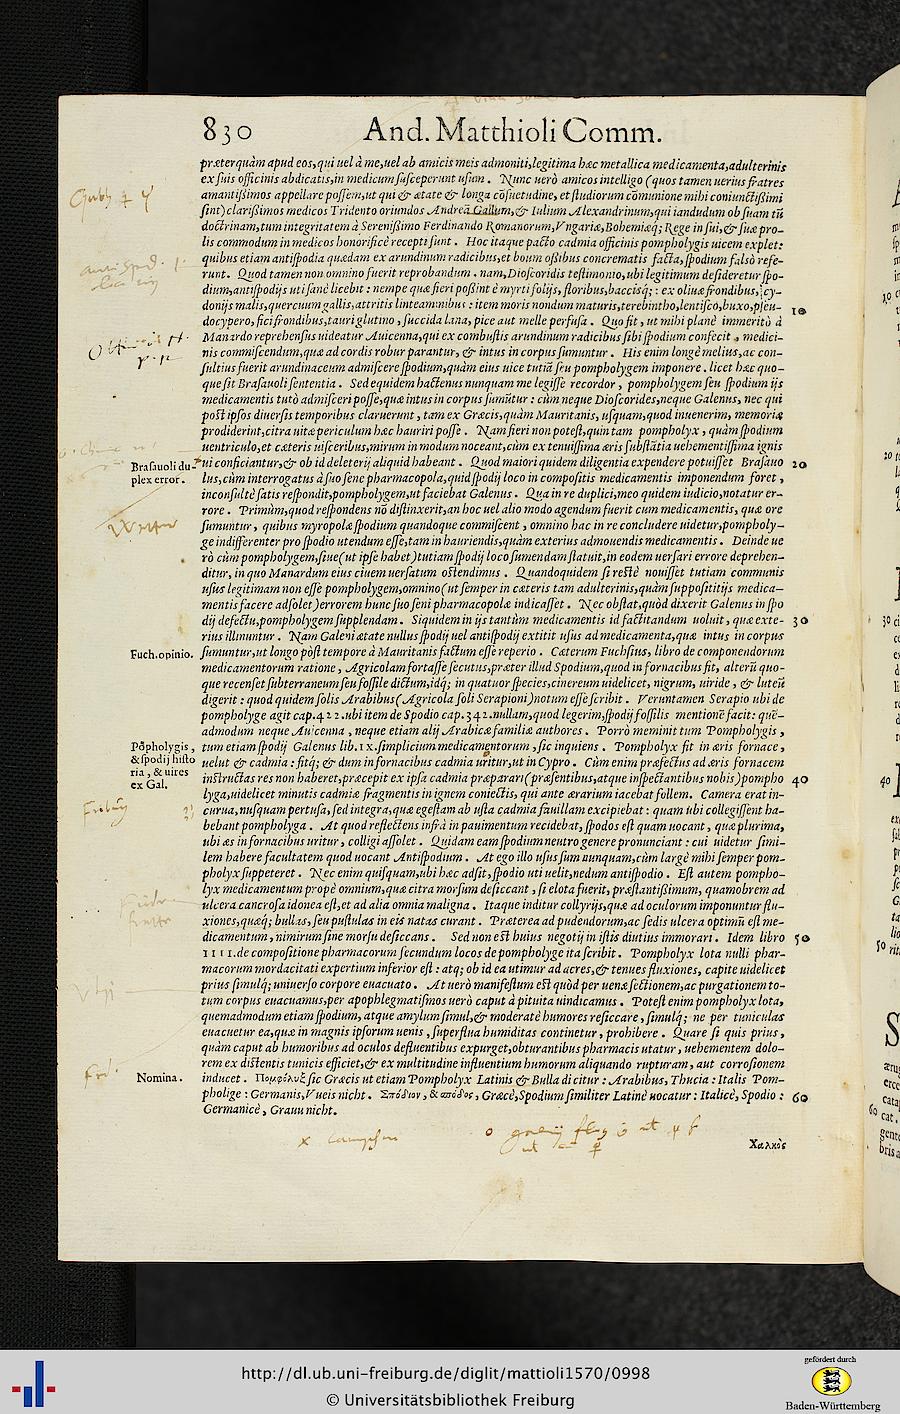 830 And. Matthioli Comm.
præterquàm apud eos, qui uel à me, uel ab amicis meis admoniti, legitima hæc metallica medicamenta, adulterinis
ex suis officinis abdicatis, in medicum susceperunt usum. Nunc uerò amicos intelligo (quos tamen uerius fratres
amantißimos appellare possem, ut qui & ætate & longa cõsuetudine, et studiorum cõmunione mihi coniunctißimi
sint) clarißimos medicos Tridento oriundos Andreã Gallum, & Iulium Alexandrinum, qui iandudum ob suam tũ
doctrinam, tum integritatem à Serenißimo Ferdinando Romanorum, Vngariæ, Bohemiæq; Rege insui, & suæ pro-
lis commodum in medicos honorificè recepti sunt. Hoc itaque pacto cadmia officinis pompholygis uicem explet:
quibus etiam antispodia quædam ex arundinum radicibus, et boum oßibus concrematis facta, spodium falsò refe-
runt. Quod tamen non omnino fuerit reprobandum. nam, Dioscoridis testimonio, ubi legitimum desideretur spo-
dium, antispodijs uti sanè licebit: nempe quæ fieri poßint è myrti folijs, floribus, baccisq;: ex oliuæ frondibus, cy-
donijs malis, quercuum gallis, attritis linteaminibus: item moris nondum maturis, terebintho, lentisco, buxo, pseu- 10
docypero, fici frondibus, tauri glutino, succida lana, pice aut melle perfusa. Quo fit, ut mihi planè immeritò à
Manardo reprehensus uideatur Auicenna, qui ex combustis arundinum radicibus sibi spodium confecit, medici-
nis commiscendum, quæ ad cordis robur parantur, & intus in corpus sumuntur. His enim longè melius, ac con-
sultius fuerit arundinaceum admiscere spodium, quàm eius uice tutiã seu pompholygem imponere. licet hæc quo-
que sit Brasauoli sententia. Sed equidem hactenus nunquam me legisse recordor, pompholygem seu spodium ijs
medicamentis tutò admisceri posse, quæ intus in corpus sumũtur: cùm neque Dioscorides, neque Galenus, nec qui
post ipsos diuersis temporibus claruerunt, tam ex Græcis, quàm Mauritanis, usquam, quod inuenerim, memoriæ
prodiderint, citra uitæ periculum hæc hauriri posse. Nam fieri non potest, quin tam pompholyx, quàm spodium
uentriculo, et cæteris uisceribus, mirum in modum noceant, cùm ex tenuissima æris substãtia uehementissima ignis
Brasauoli du-
plex error.
ui conficiantur, & ob id deleterij aliquid habeant. Quod maiori quidem diligentia expendere potuisset Brasauo 20
lus, cùm interrogatus à suo sene pharmacopola, quid spodij loco in compositis medicamentis imponendum foret,
inconsultè satis respondit, pompholygem, ut faciebat Galenus. Qua in re duplici, meo quidem iudicio, notatur er-
rore. Primùm, quod respondens nõ distinxerit, an hoc uel alio modo agendum fuerit cum medicamentis, quæ ore
sumuntur, quibus myropolæ spodium quandoque commiscent, omnino hac in re concludere uidetur, pompholy-
ge indifferenter pro spodio utendum esse, tam in hauriendis, quàm exterius admouendis medicamentis. Deinde ue
rò cùm pompholygem, siue (ut ipse habet) tutiam spodij loco sumendam statuit, in eodem uersari errore deprehen-
ditur, in quo Manardum eius ciuem uersatum ostendimus. Quandoquidem si rectè nouisset tutiam communis
usus legitimam non esse pompholygem, omnino (ut semper in cæteris tam adulterinis, quàm supposititijs medica-
mentis facere adsolet) errorem hunc suo seni pharmacopolæ indicasset. Nec obstat, quòd dixerit Galenus in spo
dij defectu, pompholygem supplendam. Siquidem in ijs tantùm medicamentis id factitandum uoluit, quæ exte- 30
rius illinuntur. Nam Galeni ætate nullus spodij uel antispodij extitit usus ad medicamenta, quæ intus in corpus
Fuch. opinio.
sumuntur, ut longo pòst tempore à Mauritanis factum esse reperio. Cæterum Fuchsius, libro de componendorum
medicamentorum ratione, Agricolam fortasse secutus, præter illud Spodium, quod in fornacibus fit, alterũ quo-
que recenset subterraneum seu fossile dictum, idq; in quatuor species, cinereum uidelicet, nigrum, uiride, & luteũ
digerit: quod quidem solis Arabibus (Agricola soli Serapioni) notum esse scribit. Veruntamen Serapio ubi de
pompholyge agit cap. 422. ubi item de Spodio cap. 342. nullam, quod legerim, spodij fossilis mentionẽ facit: quẽ-
admodum neque Auicenna, neque etiam alij Arabicæ familiæ authores. Porrò meminit tum Pompholygis,
Põpholygis,
& spodij histo
ria, & uires
ex Gal.
tum etiam spodij Galenus lib. IX. simplicium medicamentorum, sic inquiens. Pompholyx fit in æris fornace,
uelut & cadmia: fitq; & dum in fornacibus cadmia uritur, ut in Cypro. Cùm enim præfectus ad æris fornacem
instructas res non haberet, præcepit ex ipsa cadmia præparari (præsentibus, atque inspectantibus nobis) pompho 40
lyga, uidelicet minutis cadmiæ fragmentis in ignem coniectis, qui ante ærarium iacebat follem. Camera erat in-
curua, nusquam pertusa, sed integra, quæ egestam ab usta cadmia fauillam excipiebat: quam ubi collegissent ha-
bebant pompholyga. At quod reflectens infrà in pauimentum recidebat, spodos est quam uocant, quæ plurima,
ubi æs in fornacibus uritur, colligi assolet. Quidam eam spodium neutro genere pronunciant: cui uidetur simi-
lem habere facultatem quod uocant Antispodium. At ego illo usus sum nunquam, cùm largè mihi semper pom-
pholyx suppeteret. Nec enim quisquam, ubi hæc adsit, spodio uti uelit, nedum antispodio. Est autem pompho-
lyx medicamentum propè omnium, quæ citra morsum desiccant, si elota fuerit, præstantißimum, quamobrem ad
ulcera cancrosa idonea est, et ad alia omnia maligna. Itaque inditur collyrijs, quæ ad oculorum imponuntur flu-
xiones, quæq; bullas, seu pustulas in eis natas curant. Præterea ad pudendorum, ac sedis ulcera optimũ est me-
dicamentum, nimirum sine morsu desiccans. Sed non est huius negotij in istis diutius immorari. Idem libro 50
IIII. de compositione pharmacorum secundum locos de pompholyge ita scribit. Pompholyx lota nulli phar-
macorum mordacitati expertium inferior est: atq; ob id ea utimur ad acres, & tenues fluxiones, capite uidelicet
prius simulq; uniuerso corpore euacuato. At uerò manifestum est quòd per uenæ sectionem, ac purgationem to-
tum corpus euacuamus, per apophlegmatismos uerò caput à pituita uindicamus. Potest enim pompholyx lota,
quemadmodum etiam spodium, atque amylum simul, & moderatè humores resiccare, simulq; ne per tuniculas
euacuetur ea, quæ in magnis ipsorum uenis, superflua humiditas continetur, prohibere. Quare si quis prius,
quàm caput ab humoribus ad oculos defluentibus expurget, obturantibus pharmacis utatur, uehementem dolo-
rem ex distentis tunicis efficiet, & ex multitudine influentium humorum aliquando rupturam, aut corrosionem
Nomina.
inducet. Πομφόλυξ sic Græcis ut etiam Pompholyx Latinis & Bulla dicitur: Arabibus, Thucia: Italis Pom-
pholige: Germanis, Vueis nicht. Σπόδιον, & σποδὸς, Græcè, Spodium similiter Latinè uocatur: Italicè, Spodio: 60
Germanicè, Grauu nicht.
Χαλκὸς
http://dl.ub.uni-freiburg.de/diglit/mattioli1570/0998
© Universitätsbibliothek Freiburg
gefördert durch
Baden-Württemberg